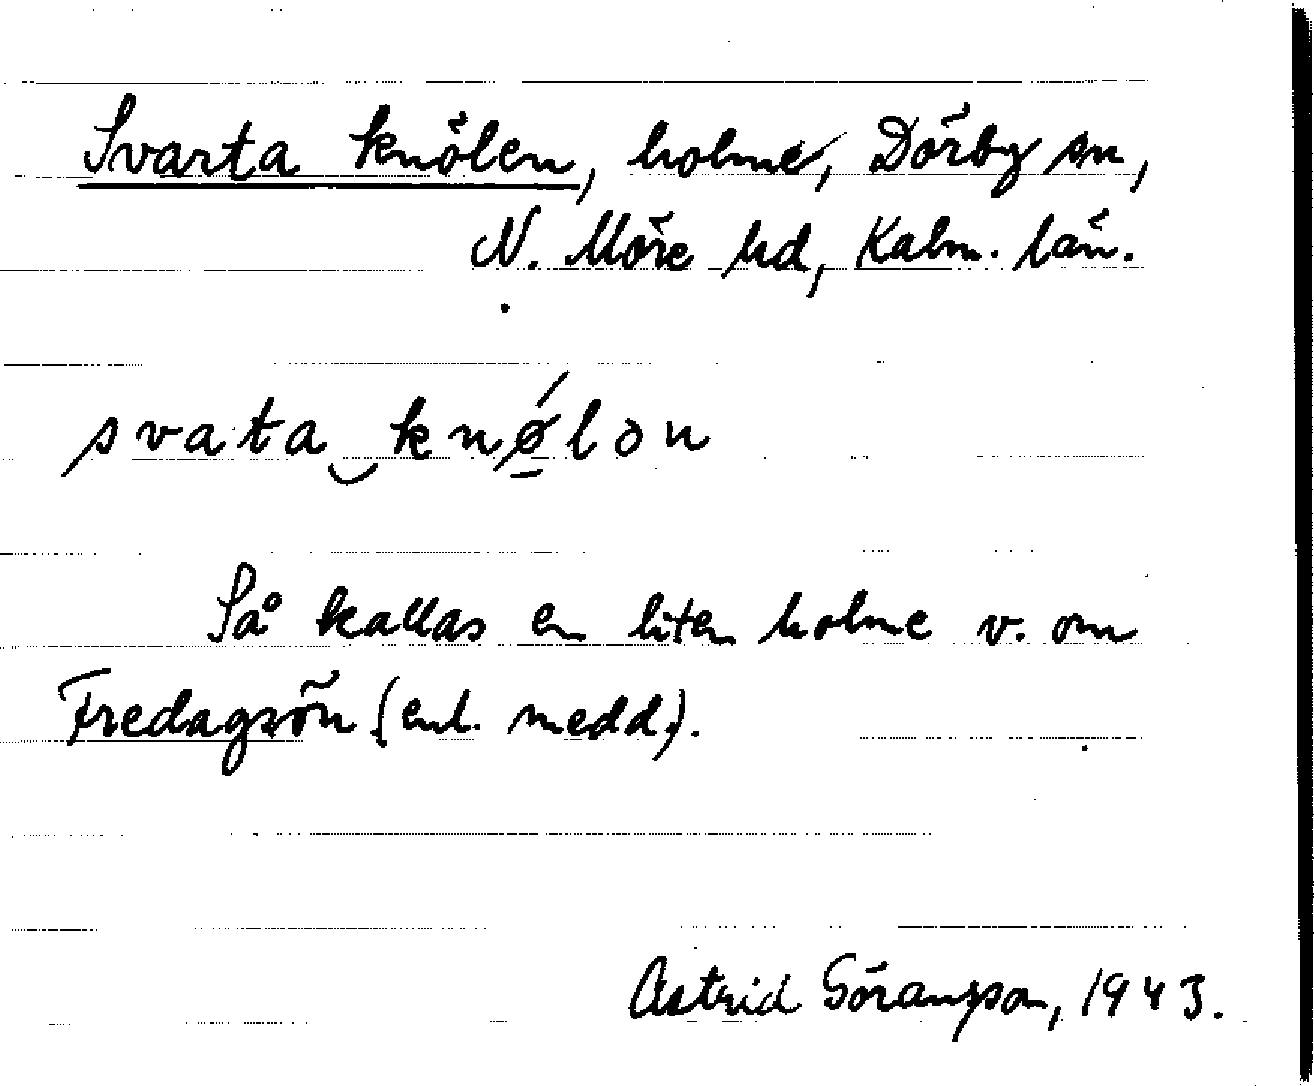 Svarta knölen, holme, Dörby sn,
N. Möre hd, Kalm. län.
svata‿knǿ̱lon
Så kallas en liten holme v. om
Fredagsön (enl. medd.).
Astrid Göransson, 1943.